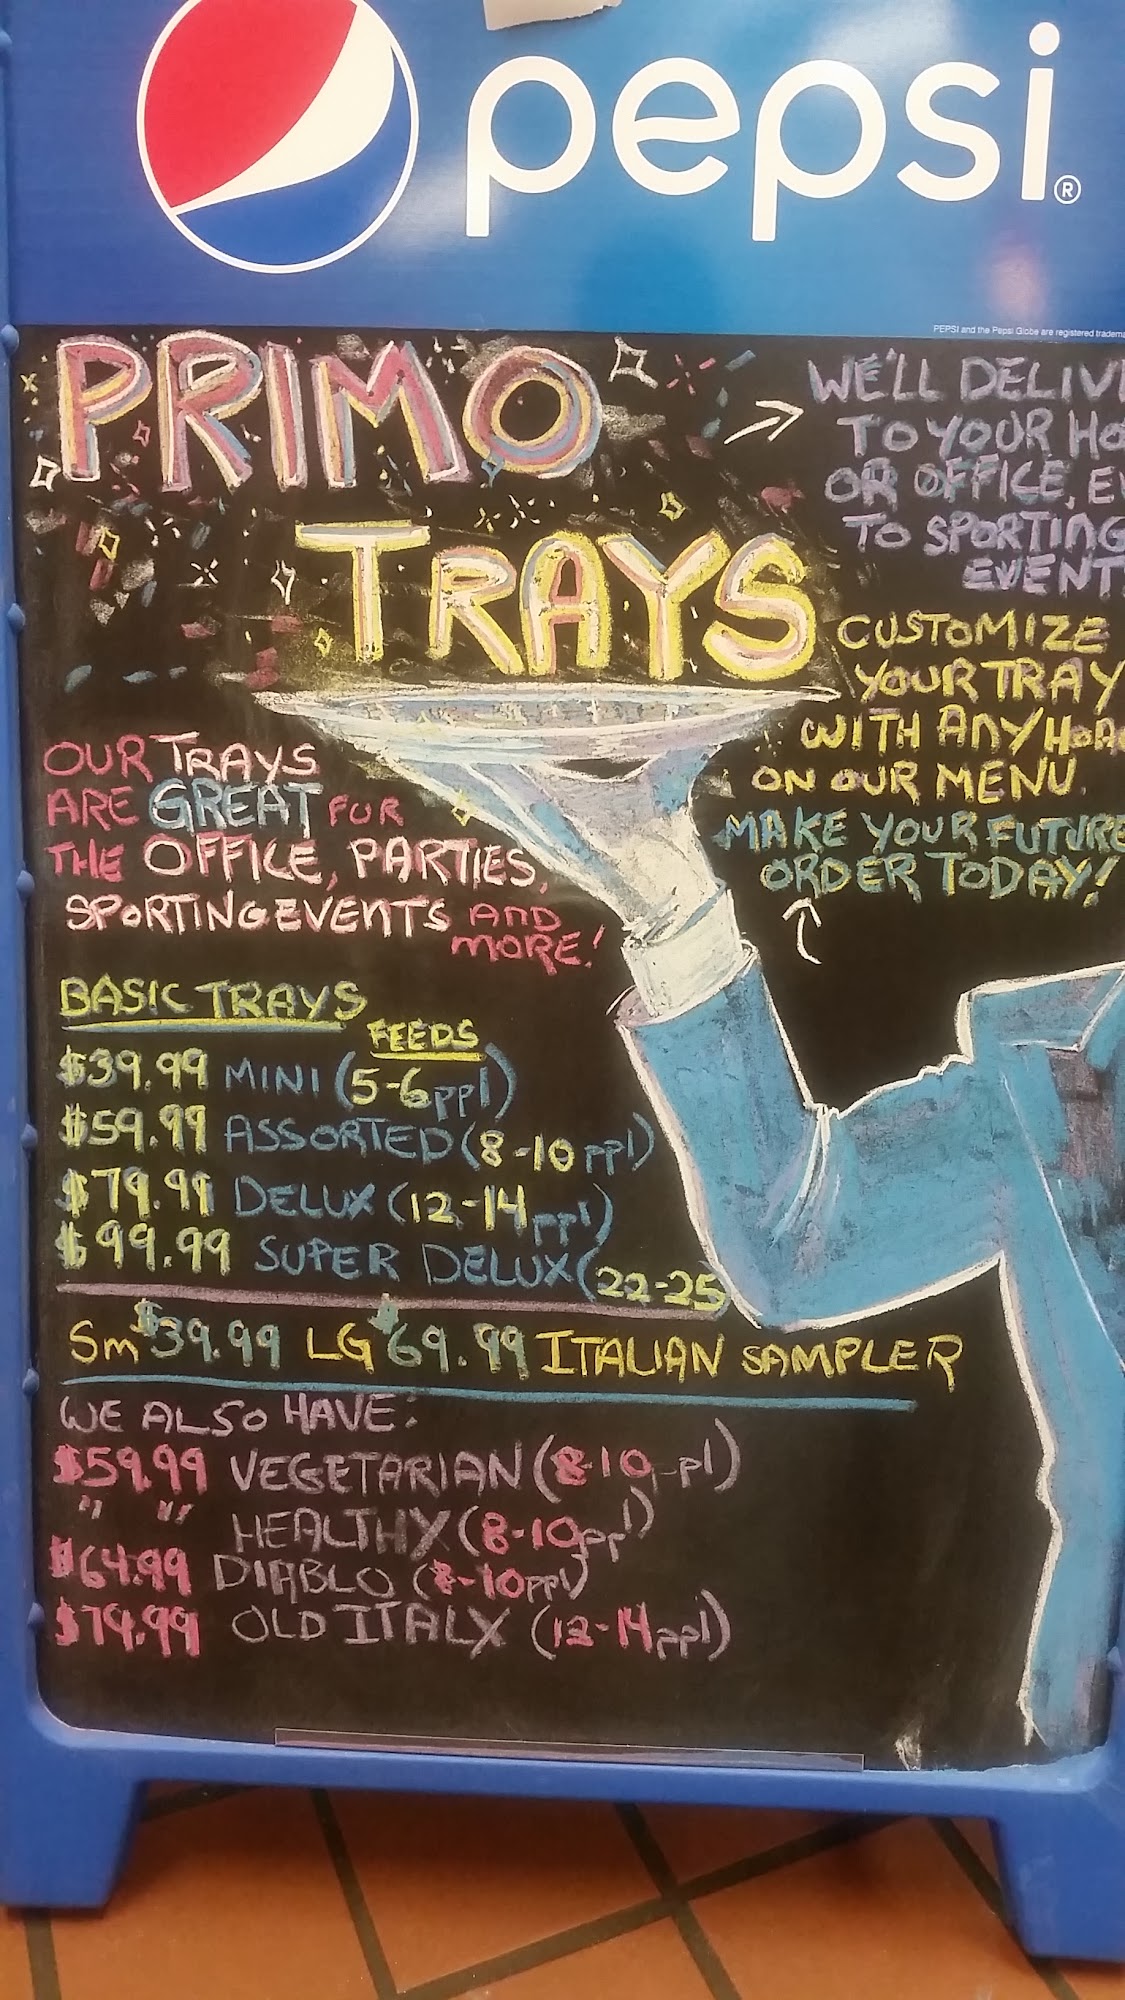 pepsi®
PEPSI and the Pepsi Globe are registered tradem
PRIMO
TRAYS
WE'LL DELIV
TO YOUR HO
OR OFFICE, EV
TO SPORTING
EVENT
CUSTOMIZE
YOUR TRAY
WITH ANY HOA
ON OUR MENU.
MAKE YOUR FUTURE
ORDER TODAY!
OUR TRAYS
ARE GREAT FOR
THE OFFICE, PARTIES,
SPORTING EVENTS AND
MORE!
BASIC TRAYS
FEEDS
$39.99 MINI (5-6 ppl)
$59.99 ASSORTED (8-10 ppl)
$79.99 DELUX (12-14 ppl)
$99.99 SUPER DELUX (22-25
Sm $39.99 LG $69.99 ITALIAN SAMPLER
WE ALSO HAVE:
$59.99 VEGETARIAN (8-10 ppl)
" " HEALTHY (8-10 ppl)
$64.99 DIABLO (8-10 ppl)
$79.99 OLD ITALY (12-14 ppl)